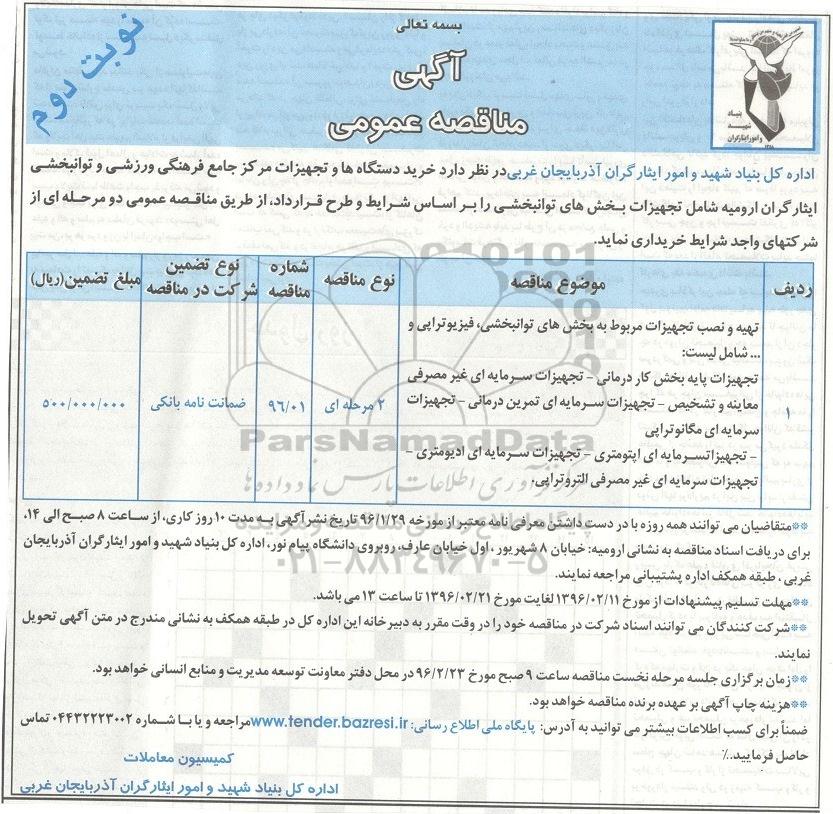 بسمه تعالی
آگهی
مناقصه عمومی
نوبت دوم
بنیاد
شهید
و امور ایثارگران
اداره کل بنیاد شهید و امور ایثارگران آذربایجان غربی در نظر دارد خرید دستگاه ها و تجهیزات مرکز جامع فرهنگی ورزشی و توانبخشی
ایثارگران ارومیه شامل تجهیزات بخش های توانبخشی را بر اساس شرایط و طرح قرارداد، از طریق مناقصه عمومی دو مرحله ای از
شرکتهای واجد شرایط خریداری نماید.
ردیف موضوع مناقصه نوع مناقصه شماره مناقصه نوع تضمین شرکت در مناقصه مبلغ تضمین(ریال)
تهیه و نصب تجهیزات مربوط به بخش های توانبخشی، فیزیوتراپی و
... شامل لیست:
تجهیزات پایه بخش کار درمانی - تجهیزات سرمایه ای غیر مصرفی
۱ معاینه و تشخیص - تجهیزات سرمایه ای تمرین درمانی - تجهیزات ۲ مرحله ای ۹۶/۰۱ ضمانت نامه بانکی ۵۰۰/۰۰۰/۰۰۰
سرمایه ای مگانوتراپی
- تجهیزاتسرمایه ای اپتومتری - تجهیزات سرمایه ای ادیومتری -
تجهیزات سرمایه ای غیر مصرفی الکتروتراپی.
ParsNamadData
فرآوری اطلاعات پارس نماد داده ها
پایگاه اطلاع رسانی مناقصه و مزایده
۰۲۱-۸۸۳۴۹۶۷۰-۵
**متقاضیان می توانند همه روزه با در دست داشتن معرفی نامه معتبر از مورخه ۹۶/۱/۲۹ تاریخ نشر آگهی به مدت ۱۰ روز کاری، از ساعت ۸ صبح الی ۱۴،
برای دریافت اسناد مناقصه به نشانی ارومیه: خیابان ۸ شهریور ، اول خیابان عارف، روبروی دانشگاه پیام نور، اداره کل بنیاد شهید و امور ایثارگران آذربایجان
غربی ، طبقه همکف اداره پشتیبانی مراجعه نمایند.
**مهلت تسلیم پیشنهادات از مورخ ۱۳۹۶/۰۲/۱۱ لغایت مورخ ۱۳۹۶/۰۲/۲۱ تا ساعت ۱۳ می باشد.
**شرکت کنندگان می توانند اسناد شرکت در مناقصه خود را در وقت مقرر به دبیرخانه این اداره کل در طبقه همکف به نشانی مندرج در متن آگهی تحویل
نمایند.
**زمان برگزاری جلسه مرحله نخست مناقصه ساعت ۹ صبح مورخ ۹۶/۲/۲۳ در محل دفتر معاونت توسعه مدیریت و منابع انسانی خواهد بود.
**هزینه چاپ آگهی بر عهده برنده مناقصه خواهد بود.
ضمناً برای کسب اطلاعات بیشتر می توانید به آدرس: پایگاه ملی اطلاع رسانی: www.tender.bazresi.ir مراجعه و یا با شماره ۰۴۴۳۲۲۲۳۰۰۲ تماس
حاصل فرمایید./
کمیسیون معاملات
اداره کل بنیاد شهید و امور ایثارگران آذربایجان غربی